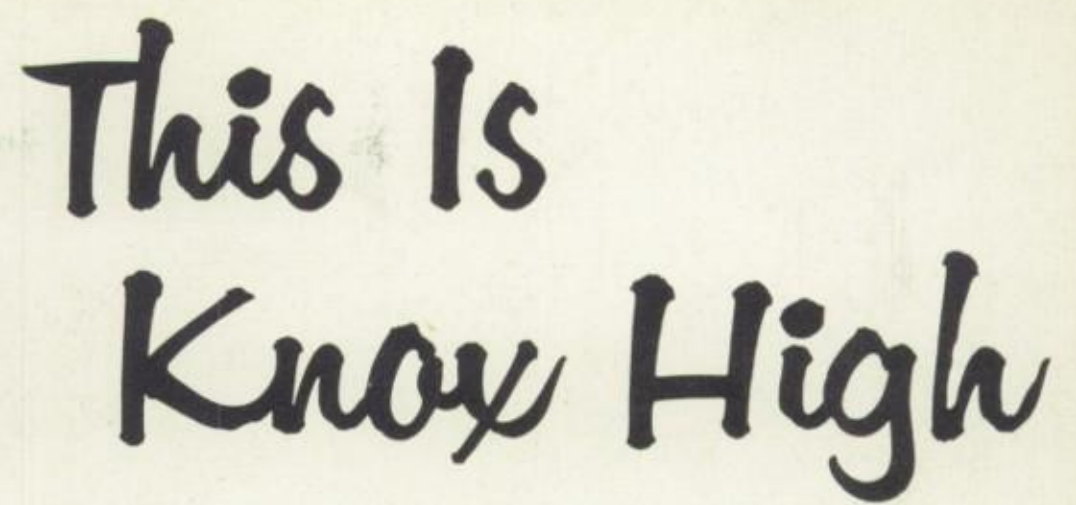 This Is
Knox High